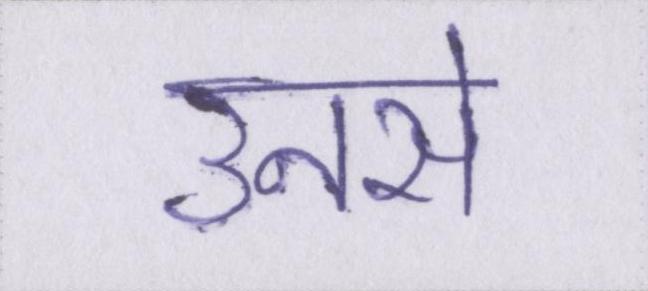 उनसे